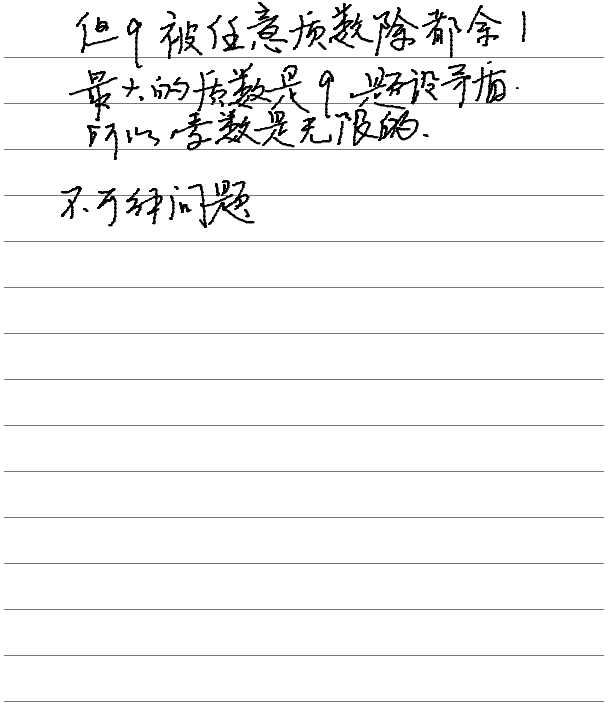 但q被任意质数除都余1
最大的质数是q 题设矛盾.
所以素数是无限的.
不可解问题